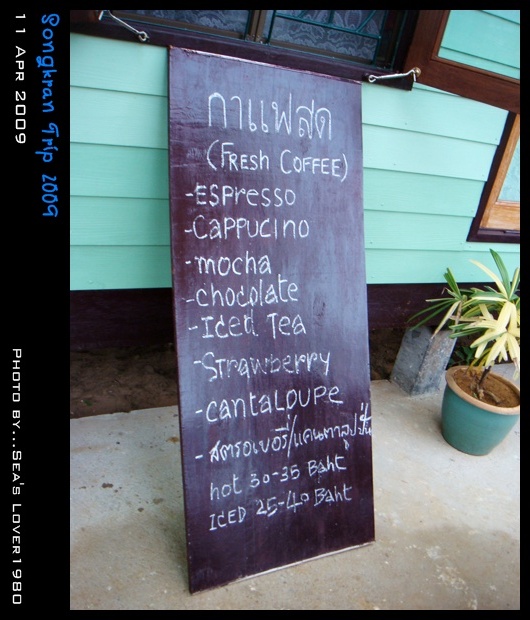 Songkran Trip 2009
11 Apr 2009
กาแฟสด
(FRESH COFFEE)
-ESPresso
-CAPPUCINO
-mocha
-chocolate
-Iced Tea
-Strawberry
-CANTALOUPE
-สตรอเบอรี่/แคนตาลูปปั่น
hot 30-35 Baht
ICED 25-40 Baht
Photo by...Sea's Lover1980